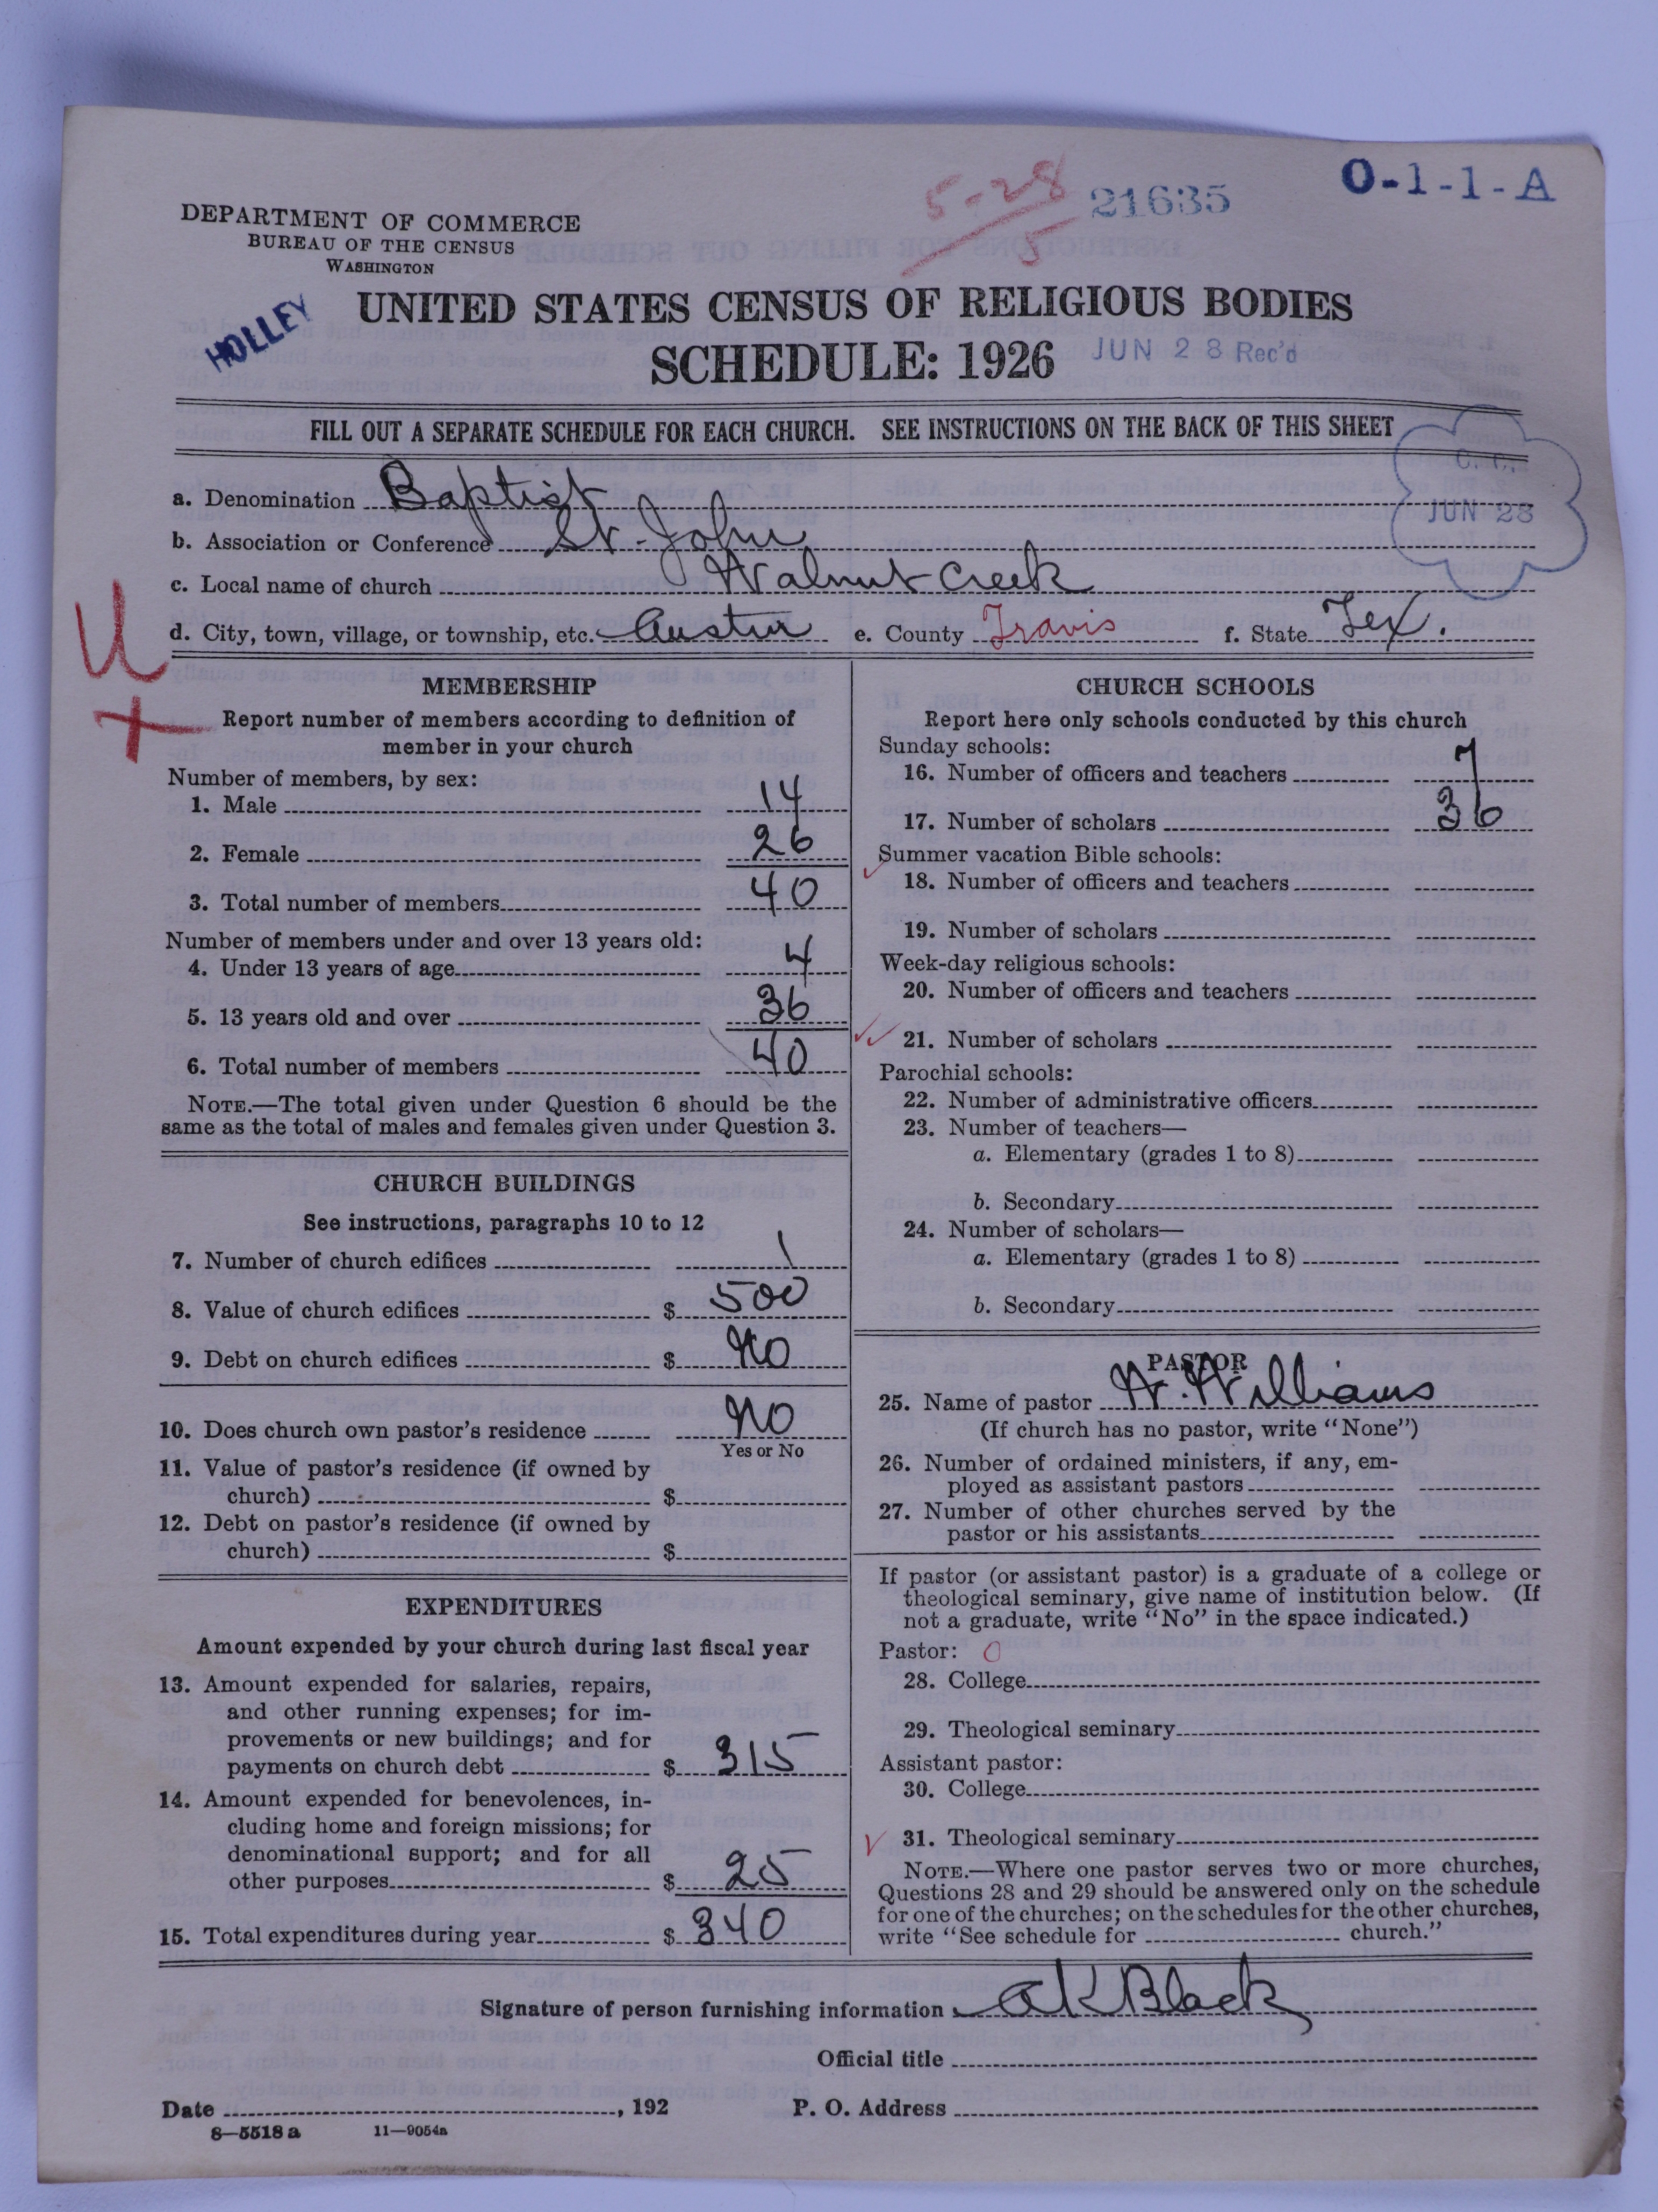 5-28
5
21635
O-1-1-A
DEPARTMENT OF COMMERCE
BUREAU OF THE CENSUS
WASHINGTON
HOLLEY
UNITED STATES CENSUS OF RELIGIOUS BODIES
SCHEDULE: 1926
JUN 28 Rec'd
FILL OUT A SEPARATE SCHEDULE FOR EACH CHURCH. SEE INSTRUCTIONS ON THE BACK OF THIS SHEET
C.C.
JUN 28
a. Denomination Baptist
b. Association or Conference St. John
c. Local name of church Walnut Creek
d. City, town, village, or township, etc. Austin e. County Travis f. State Tex.
U
+
MEMBERSHIP
Report number of members according to definition of
member in your church
Number of members, by sex:
1. Male 14
2. Female 26
3. Total number of members 40
Number of members under and over 13 years old:
4. Under 13 years of age 4
5. 13 years old and over 36
6. Total number of members 40
NOTE.—The total given under Question 6 should be the
same as the total of males and females given under Question 3.
CHURCH BUILDINGS
See instructions, paragraphs 10 to 12
7. Number of church edifices 1
8. Value of church edifices $ 500
9. Debt on church edifices $ NO
10. Does church own pastor's residence NO
Yes or No
11. Value of pastor's residence (if owned by
church) $
12. Debt on pastor's residence (if owned by
church) $
EXPENDITURES
Amount expended by your church during last fiscal year
13. Amount expended for salaries, repairs,
and other running expenses; for im-
provements or new buildings; and for
payments on church debt $ 315
14. Amount expended for benevolences, in-
cluding home and foreign missions; for
denominational support; and for all
other purposes $ 25
15. Total expenditures during year $ 340
CHURCH SCHOOLS
Report here only schools conducted by this church
Sunday schools:
16. Number of officers and teachers 7
17. Number of scholars 36
Summer vacation Bible schools:
18. Number of officers and teachers
19. Number of scholars
Week-day religious schools:
20. Number of officers and teachers
21. Number of scholars
Parochial schools:
22. Number of administrative officers
23. Number of teachers—
a. Elementary (grades 1 to 8)
b. Secondary
24. Number of scholars—
a. Elementary (grades 1 to 8)
b. Secondary
PASTOR
25. Name of pastor W. Williams
(If church has no pastor, write "None")
26. Number of ordained ministers, if any, em-
ployed as assistant pastors
27. Number of other churches served by the
pastor or his assistants
If pastor (or assistant pastor) is a graduate of a college or
theological seminary, give name of institution below. (If
not a graduate, write "No" in the space indicated.)
Pastor: O
28. College
29. Theological seminary
Assistant pastor:
30. College
31. Theological seminary
NOTE.—Where one pastor serves two or more churches,
Questions 28 and 29 should be answered only on the schedule
for one of the churches; on the schedules for the other churches,
write "See schedule for church."
Signature of person furnishing information A K Black
Official title
Date , 192 P. O. Address
8—5518 a 11—9054a